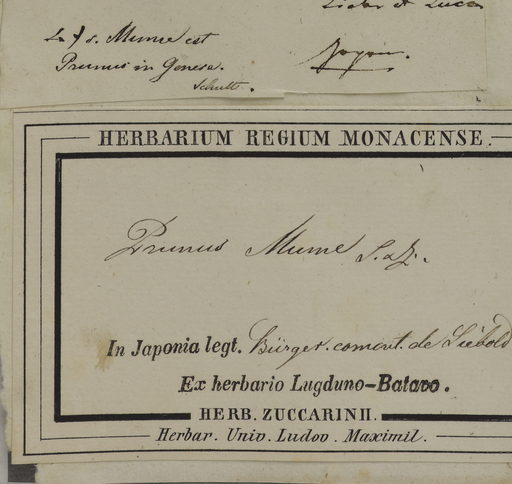 Mume est
Prunus in Genera.
Schult.
HERBARIUM REGIUM MONACENSE.
Prunus Mume S. & Z.
In Japonia legt. Bürger. comont. de Siebold
Ex herbario Lugduno-Batavo.
HERB. ZUCCARINII.
Herbar. Univ. Ludov. Maximil.